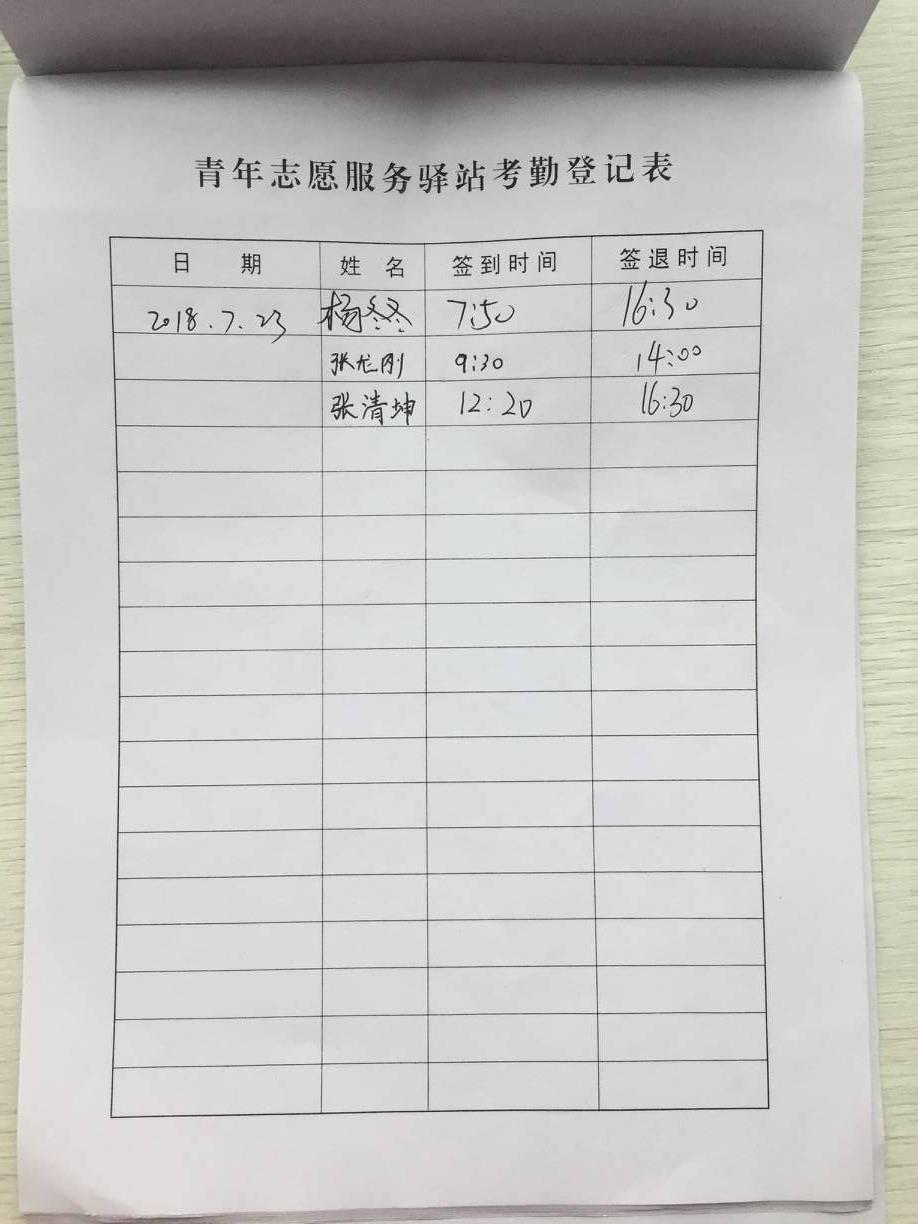 青年志愿服务驿站考勤登记表
日 期 姓 名 签到时间 签退时间
2018.7.23 杨冬冬 7:50 16:30
张龙刚 9:30 14:00
张清坤 12:20 16:30